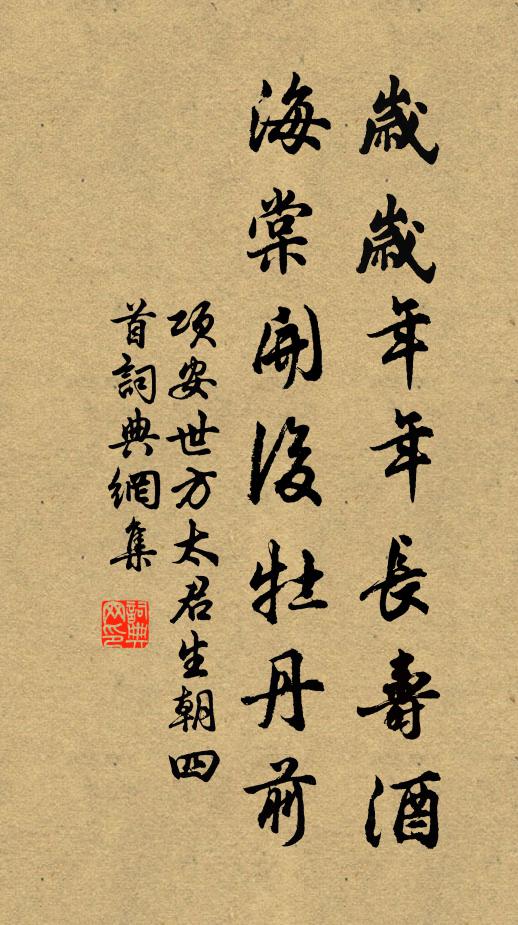 歲歲年年長壽酒
海棠開後牡丹前
項安世方太君生朝四
首詞典網集
詞典网印